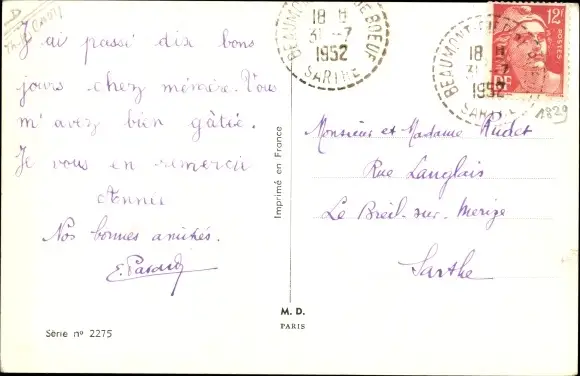 J'ai passé dix bons
jours chez mémère. Vous
m'avez bien gâtée.
Je vous en remercie
Annie
Nos bonnes amitiés.
Série nº 2275
Imprimé en France
M. D.
PARIS
18 H
31 -7
1952
SARTHE
BEAUMONT
DE BOEUF
18 H
31 -7
1952
SARTHE
BEAUMONT
12F
POSTES
RF
1829
Monsieur et Madame Audet
Rue Langlais
Le Breil-sur-Merize
Sarthe